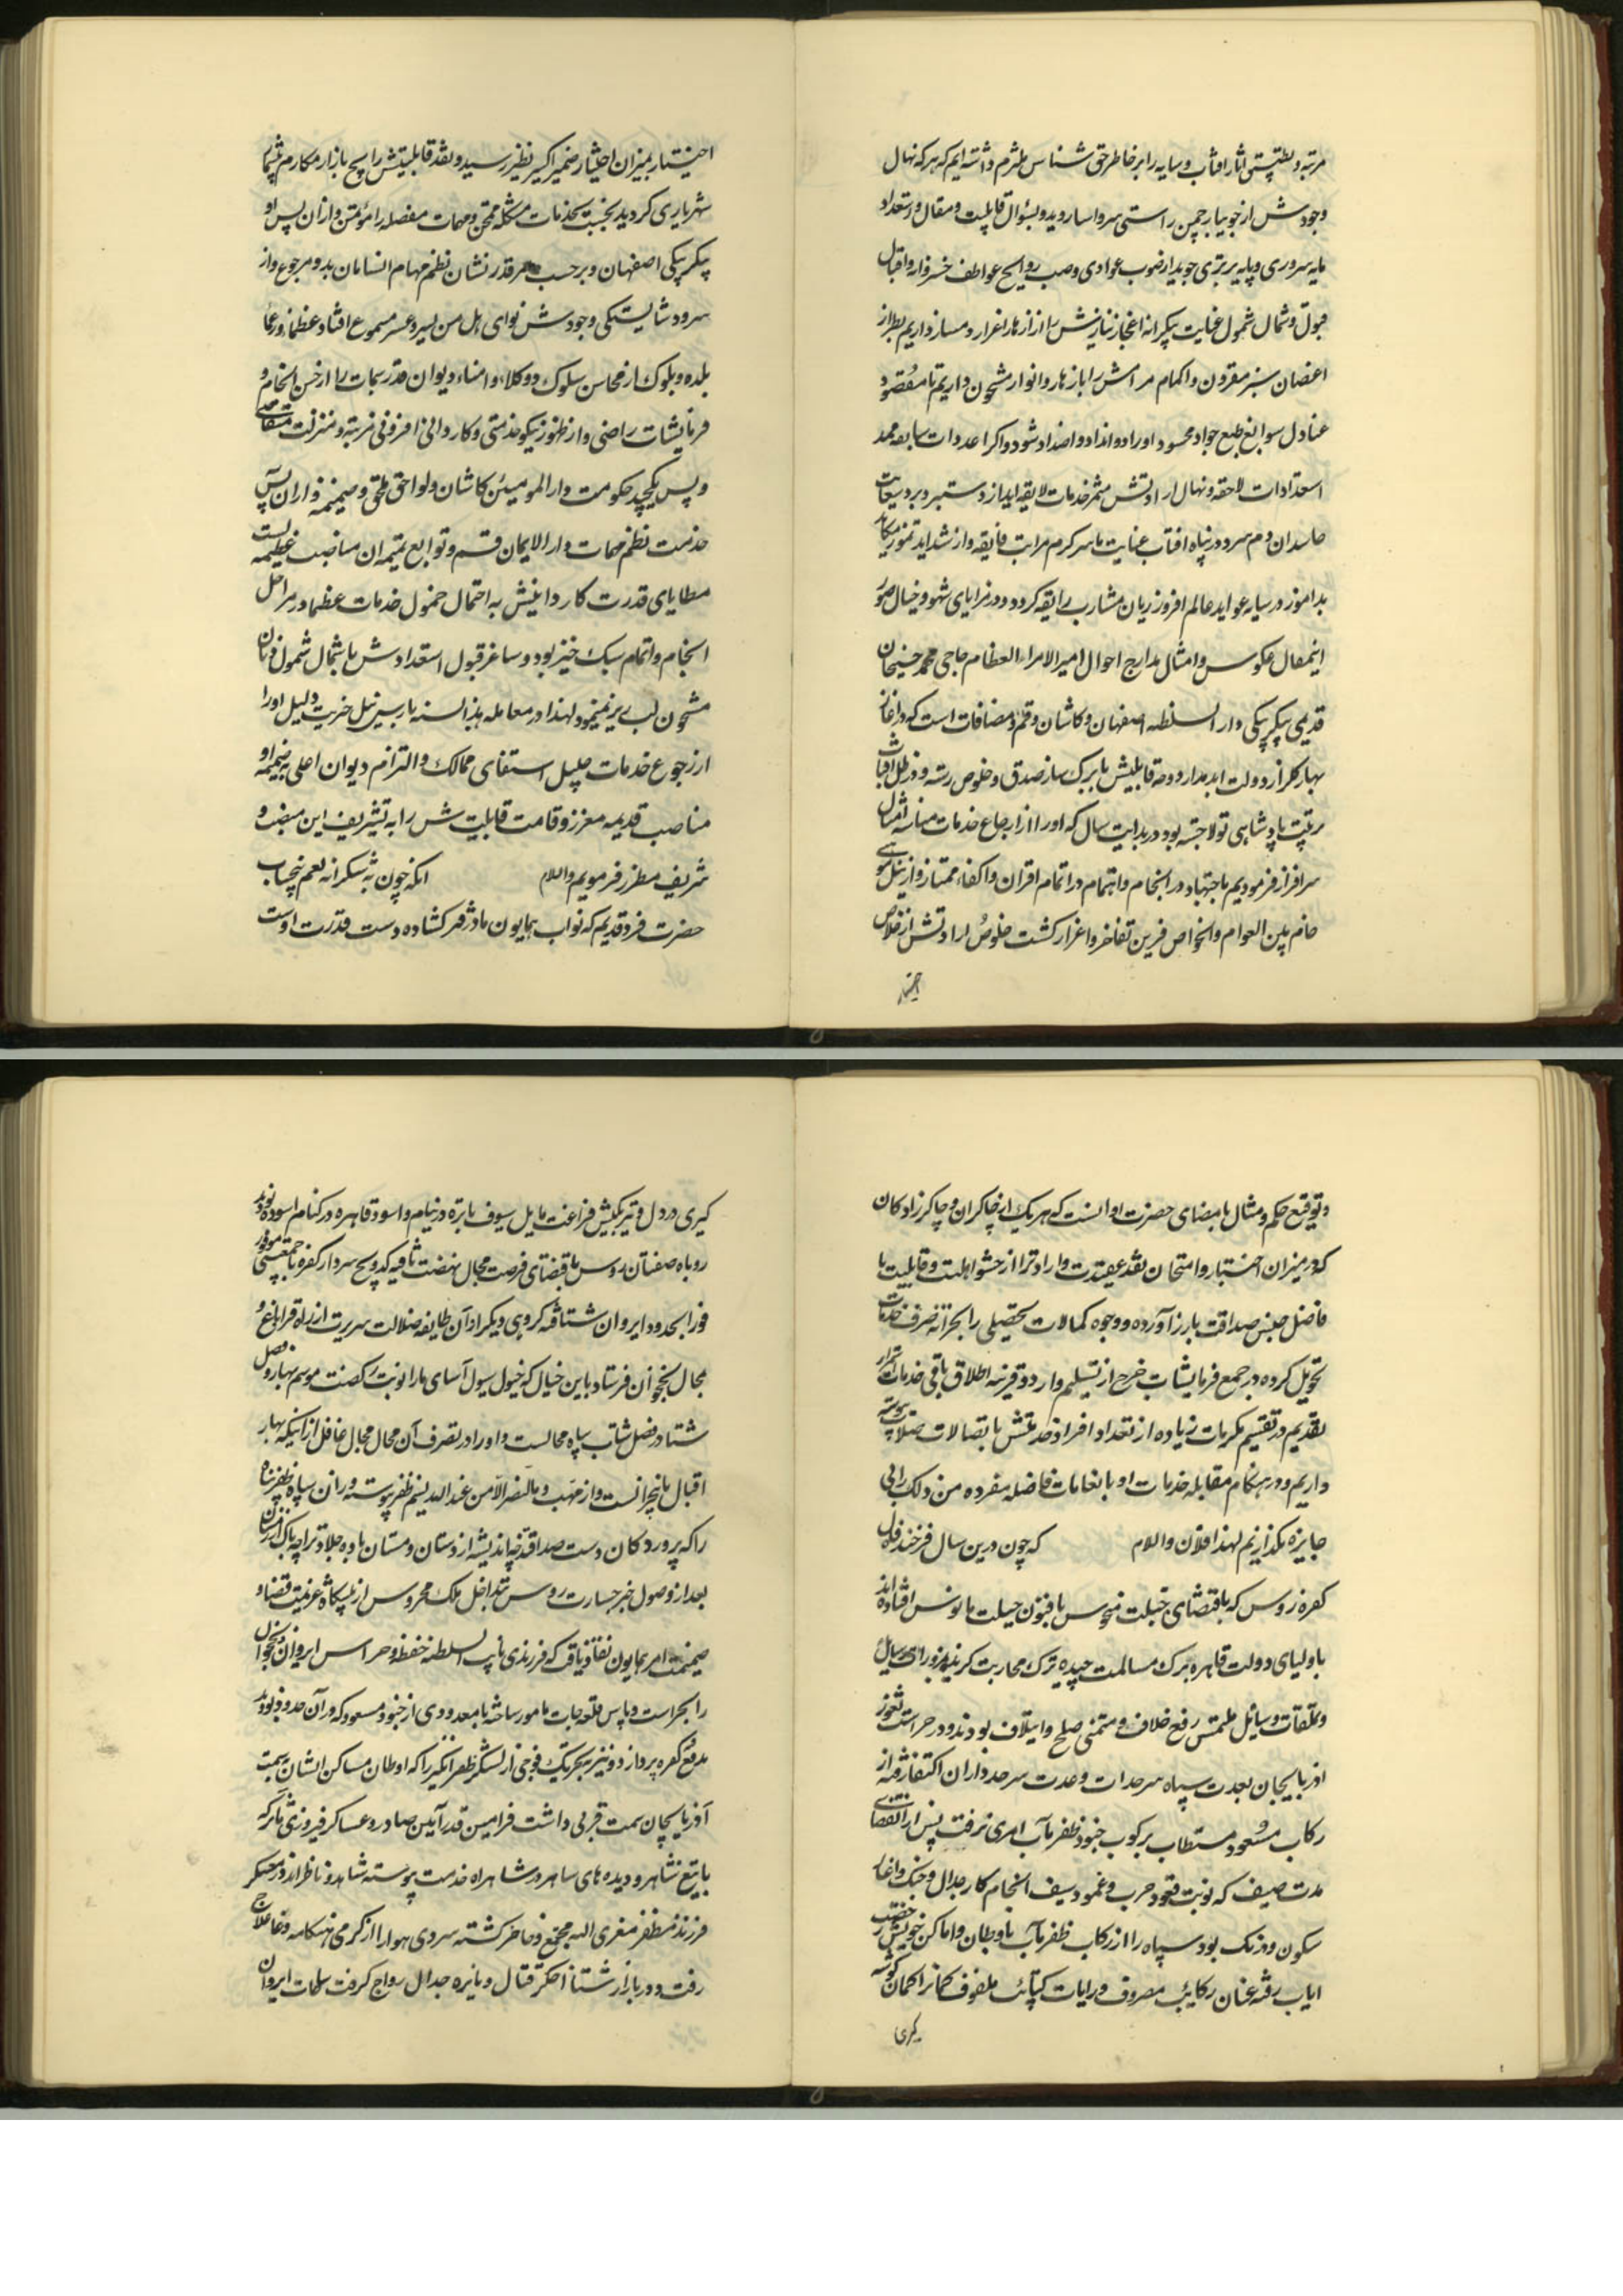 مرتبه و نظم آثار آفتاب و سایه را بر خاطر حق شناس ملتزم داشته ایم که هر که نهال
وجودش از جویبار چمن راستی سرو اسا روید و بسؤال قابلیت و مقال و استعداد
مایه سروری و پایه برتری جوید از صوب عوادی و صب روایح عواطف خسروانه و اقبال
قبول و شمال شمول عنایت بیکرانه
اغصان سبز مقرون و اکمام مرامش را بازهار و انوار مشحون داریم تا مقصود
عنادل سوابغ طبع جواد محسود اوراد و انداد و اضداد شود و اگر اعدادات سابقه ممد
استعدادات لاحقه و نهال ارادتش مثمر خدمات لایقه آید از دستبرد برد سعایت
حاسدان دم سرد در پناه آفتاب عنایت ما سرگرم مراتب فایقه و از شداید تموز مکاید
بداموز در سایه عواید عالم افروز ریان مشارب رایقه گردد و در مرایای شهود خیال صور
اینمقال عکوس و امثال مدارج احوال امیر الامراء العظام حاجی محمد حسینخان
قدیمی بیگلربیگی دار السلطنه اصفهان و کاشان و قم و مضافات است که در آغاز
بهار گلزار دولت ابد مدار دوحه قابلیتش با برگ و ساز صدق و خلوص رسته و در ظل آفتاب
تربیت پادشاهی تولا جسته بود در بدایت سال که او را از ارجاع خدمات مناسبه امثال
سرافراز فرمودیم باجتهاد در انجام و اهتمام در اتمام اقران و اکفاء ممتاز و از نیل مواهب
خاص بین العوام و الخواص قرین تفاخر و اعزاز گشت خلوص ارادتش از خلاص
اختبار
اختبار بمیزان اختیار ضمیر اکسیر نظیر رسید و نقد قابلیتش رایج بازار مکارم بیشمار
شهریاری گردید نخست بخدمات مشکله ممتحن و مهمات مفصله را مؤتمن و از آن پس او
بیگلربیگی اصفهان و برحسب امر قدر نشان نظم مهام انسامان بدو مرجوع و از
سرود شایستگی وجودش نوای هل من یسیر و عسر مسموع افتاد عظما و رعایا
بلده و بلوک از محاسن سلوک و وکلا و امناء دیوان قدر سمات را از حسن انجام
فرمایشات راضی و از ظهور نیکو خدمتی و کاردانی افزونی مرتبه و منزلت متقاضی
و پس یکچند حکومت دار المومنین کاشان و لواحق ملحق و ضمیمه و از آن پس
خدمت نظم مهمات دار الایمان قم و توابع تتمیم آن مناصب عظیمه
مطایای قدرت کاردانیش به احتمال حمول خدمات عظما در مراحل
انجام و اتمام سبک خیز بود و ساغر قبول استعدادش با شمال شمول
مشحون لب بریز مینمود لهذا در معامله هذه السنه بارس ئیل خیریت دلیل او را
از رجوع خدمات جلیل استیفای ممالک و التزام دیوان اعلی به ضمیمه
مناصب قدیمه معزز و قامت قابلیتش را به تشریف این منصب
شریف مطرز فرمودیم والسلام آنکه چون به شکرانه نعم بیحساب
حضرت فرد قدیم که نواب همایون ما در قهر گشاده دست قدرت اوست
و توقیع حکم و مثال بامضای حضرت او آنست که هر یک از چاکران و چاکرزادگان
که در میزان اختبار و امتحان نقد عقیدت و ارادت را از حشو اهلیت و قابلیت با
فاضل جنس صداقت بارز آورده و وجوه کمالات تحصیلی را بخزانه صرف خدمات
تحویل کرده در جمع فرمایشات خرج از تسلیم وارد و قرینه اطلاق باقی خدمات
تقدیم در تقسیم مکرمات زیاده از تعداد افراد خدمتش با اتصالات صلات پیوسته
داریم و در هنگام مقابله خدمات او با انعامات فاضله مفرده من ذلک را بی
جایزه نگذاریم لهذا فلان والسلام که چون درین سال فرخنده فال
کفره روس که باقتضای جبلت منحوس بافنون حیلت مانوس افتاده اند
با اولیای دولت قاهره برگ مسالمت چیده ترک محاربت گزیده
و تملقات وسایل ملتمس رفع خلاف و متمنی صلح و ایتلاف بودند و در حراست ثغور
آذربایجان بعدت سپاه سرحدات و عدت سرحد داران اکتفا رفته از
رکاب مسعود مستطاب برکوب جنود ظفر مآب امری نرفت پس از انقضای
مدت صیف که نوبت قعود حرب و غمود سیف انجام کار جدال و جنک و آغاز
سکون و درنگ بود سپاه را از رکاب ظفر مآب باوطان و اماکن خویش رخصت
ایاب رفته عنان رکایب مصروف و رایات کتائب ملفوف
گیری
گیری در دل و تیر بکیش فراغت مایل سیوف باتره در نیام و اسود قاهره در کنام آسوده بودند
روباه صفتان روس باقتضای فرصت مجال نهضت سردار کفره با جمعیتی موفور
فورا بحدود ایروان شتافته گروهی دیگر از آن طایفه ضلالت سریرت از راه قراباغ
محال نخجوان فرستاد باین خیال که خیول سیول آسای ما را نوبت رکضت موسم بهار و
شتا در فصل شتاب سپاه محالست و او را در تصرف آن محال مجال غافل از اینکه بهار
اقبال ما و ما النصر الا من عند الله نسیم ظفر پیوسته وزان سپاه ظفر پناه
را که پروردگان دست صداقتند چه اندیشه از دستان و مستان باده جلادت را چه باک از زمستان
بعد از وصول خبر جسارت روس بتداخل ملک محروس از پیشگاه عزیمت قضا
ضمیمت امر همایون نفاذ یافت که فرزندی نایب السلطنه حفظ و حراست ایروان و نخجوان
را بحراست و پاس قلعه جات مامور ساخته با معدودی از جنود مسعود که در آن حدود بودند
بدفع کفره پردازد و نیز بتحریک فوجی از لشکر ظفر اثر را که اوطان و مساکن ایشان به سمت
آذربایجان سمت قربی داشت فرامین قدر آیین صادر و عساکر فیروزی مآثر که
با تیغ شاهر و دیده های ساهر در شاهراه خدمت پیوسته شاهد و ناظراند در معسکر
فرزند مظفر مغزی الیه مجتمع و حاضر گشته سردی هوا را از گرمی هنگامه وغا علاج
رفت و در بازار شتا اخگر قتال و نایره جدال رواج گرفت ساحات ایروان